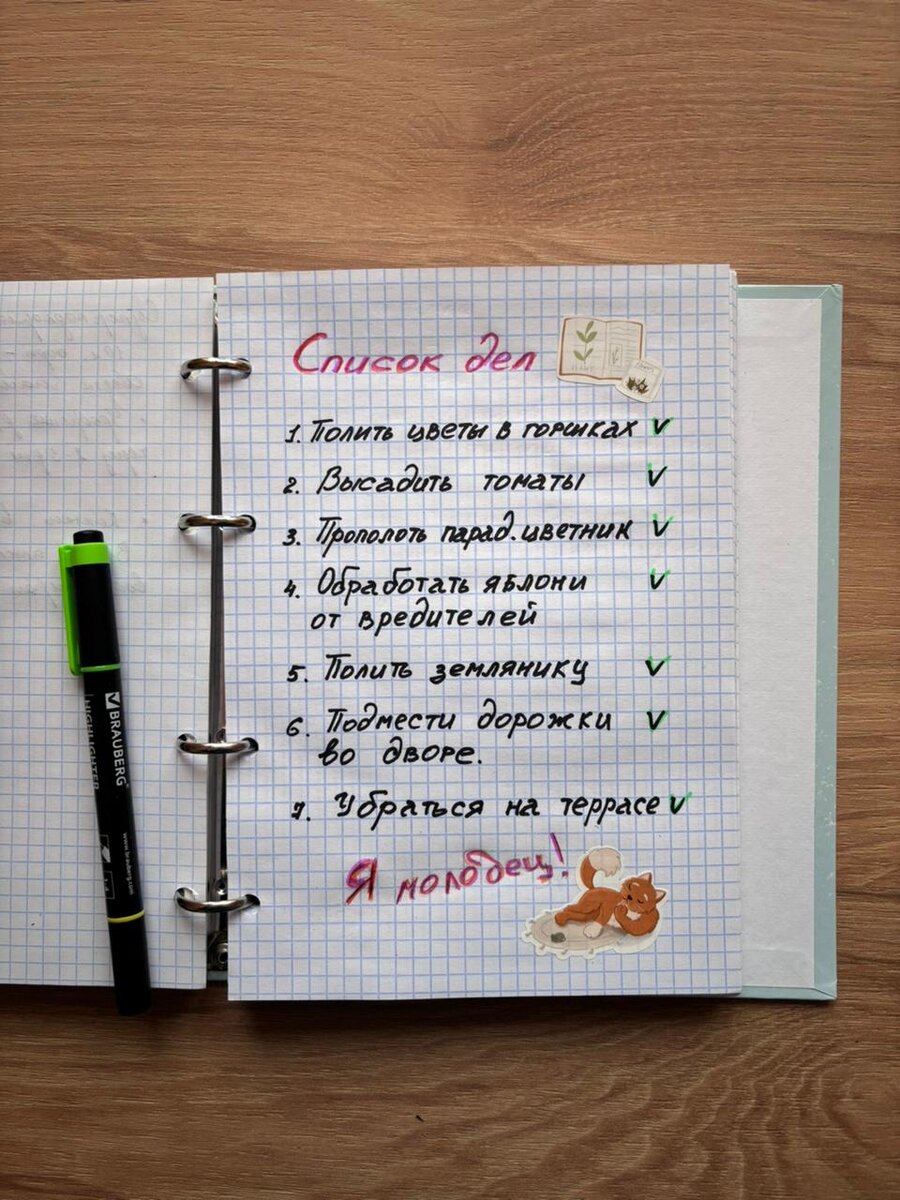 Список дел
1. Полить цветы в горшках ✓
2. Высадить томаты ✓
3. Прополоть парад. цветник ✓
4. Обработать яблони ✓
от вредителей
5. Полить землянику ✓
6. Подмести дорожки ✓
во дворе.
7. Убраться на террасе ✓
Я молодец!
BRAUBERG
HIGHLIGHTER
www.brauberg.com